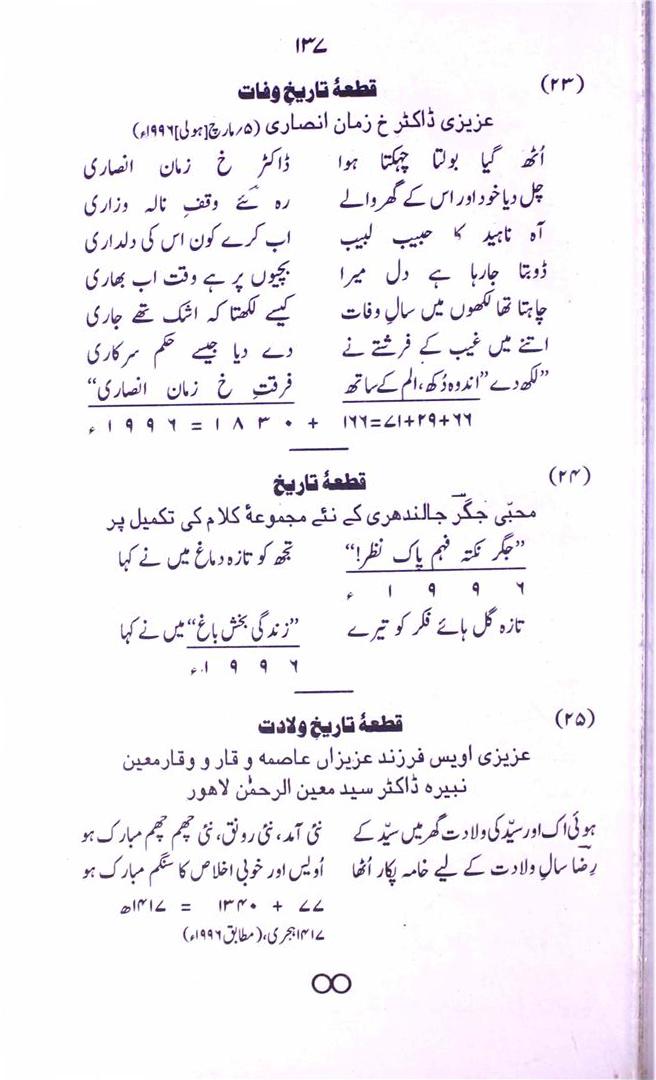 ۱۳۷
(۲۳) قطعۂ تاریخِ وفات
عزیزی ڈاکٹر خ زمان انصاری (۵؍مارچ[ہولی]۱۹۹۶ء)
اُٹھ گیا بولتا چہکتا ہوا ڈاکٹر خ زمان انصاری
چل دیا خود اور اس کے گھر والے رہ گئے وقفِ نالہ وزاری
آہ ناہید کا حبیب لبیب اب کرے کون اس کی دلداری
ڈوبتا جارہا ہے دل میرا بچیوں پر ہے وقت اب بھاری
چاہتا تھا لکھوں میں سالِ وفات کیسے لکھتا کہ اشک تھے جاری
اتنے میں غیب کے فرشتے نے دے دیا جیسے حکم سرکاری
”لکھ دے ”اندوہ دُکھ، الم کے ساتھ فرقتِ خ زمان انصاری“
۶۶+۲۹+۷۱=۱۶۶ + ۱۸۳۰ = ۱۹۹۶ء
(۲۴) قطعۂ تاریخ
محبّی جگرؔ جالندھری کے نئے مجموعۂ کلام کی تکمیل پر
”جگر نکتہ فہم پاک نظر!“ تجھ کو تازہ دماغ میں نے کہا
۱۹۹۶ء
تازہ گل ہائے فکر کو تیرے ”زندگی بخش باغ“ میں نے کہا
۱۹۹۶ء
(۲۵) قطعۂ تاریخِ ولادت
عزیزی اویس فرزند عزیزاں عاصمہ و قار و وقار معین
نبیرہ ڈاکٹر سید معین الرحمٰن لاهور
ہوئی اک اور سیّد کی ولادت گھر میں سیّد کے نئی آمد، نئی رونق، نئی چھم چھم مبارک ہو
رضاؔ سالِ ولادت کے لیے خامہ پکار اُٹھا اُویس اور خوبیِ اخلاص کا سنگم مبارک ہو
۷۷ + ۱۳۴۰ = ۱۴۱۷ھ
۱۴۱۷ہجری، (مطابق ۱۹۹۶ء)